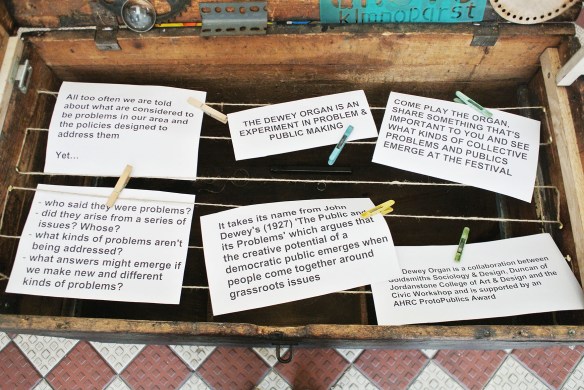 klmnopqrst
All too often we are told
about what are considered to
be problems in our area and
the policies designed to
address them
Yet...
THE DEWEY ORGAN IS AN
EXPERIMENT IN PROBLEM &
PUBLIC MAKING
COME PLAY THE ORGAN,
SHARE SOMETHING THAT'S
IMPORTANT TO YOU AND SEE
WHAT KINDS OF COLLECTIVE
PROBLEMS AND PUBLICS
EMERGE AT THE FESTIVAL
- who said they were problems?
- did they arise from a series of
issues? Whose?
- what kinds of problems aren't
being addressed?
- what answers might emerge if
we make new and different
kinds of problems?
It takes its name from John
Dewey's (1927) 'The Public and
its Problems' which argues that
the creative potential of a
democratic public emerges when
people come together around
grassroots issues
Dewey Organ is a collaboration between
Goldsmiths Sociology & Design, Duncan of
Jordanstone College of Art & Design and the
Civic Workshop and is supported by an
AHRC ProtoPublics Award